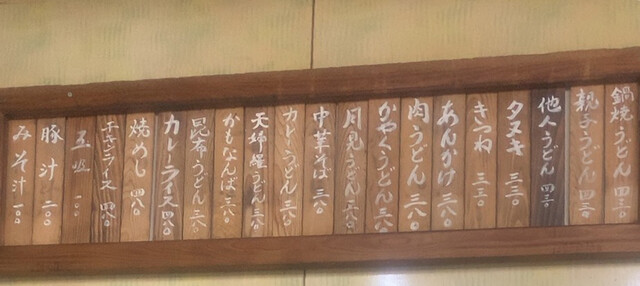 鍋焼うどん 四三〇
親子うどん 四三〇
他人うどん 四三〇
タヌキ 三三〇
きつね 三三〇
あんかけ 三八〇
肉うどん 三八〇
かやくうどん 三八〇
月見うどん 三六〇
中華そば 三八〇
カレーうどん 三八〇
天婦羅うどん 三八〇
かもなんば 三八〇
昆布うどん 三八〇
カレーライス 四八〇
焼めし 四八〇
チキンライス 四八〇
玉 一〇
豚汁 二〇〇
みそ汁 一〇〇